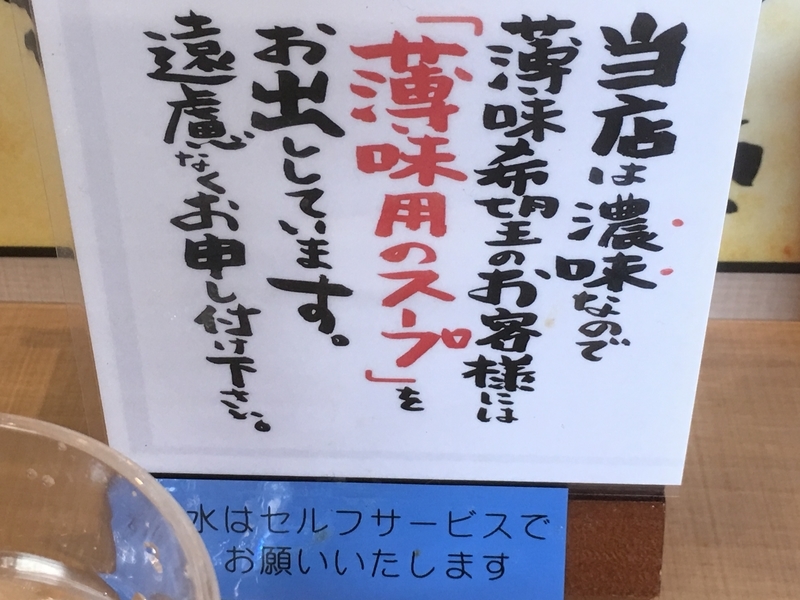 当店は濃味なので
薄味希望のお客様には
「薄味用のスープ」を
お出ししています。
遠慮なくお申し付け下さい。
水はセルフサービスで
お願いいたします